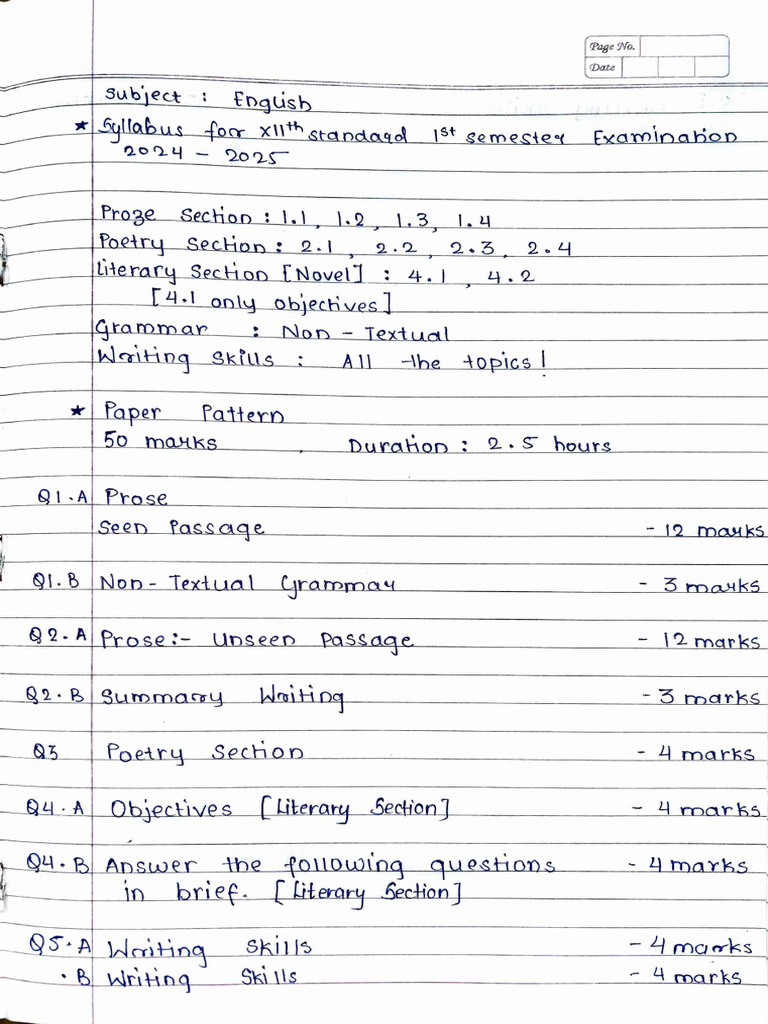 Page No.
Date
Subject : English
★ Syllabus for XIIth standard 1st semester Examination
2024 - 2025
Proze Section : 1.1, 1.2, 1.3, 1.4
Poetry Section : 2.1, 2.2, 2.3, 2.4
Literary Section [Novel] : 4.1, 4.2
[4.1 only objectives]
Grammar : Non-Textual
Writing Skills : All the topics!
★ Paper Pattern
50 marks Duration : 2.5 hours
Q1.A Prose
Seen Passage - 12 marks
Q1.B Non-Textual Grammar - 3 marks
Q2.A Prose:- Unseen Passage - 12 marks
Q2.B Summary Writing - 3 marks
Q3 Poetry Section - 4 marks
Q4.A Objectives [Literary Section] - 4 marks
Q4.B Answer the following questions - 4 marks
in brief. [Literary Section]
Q5.A Writing Skills - 4 marks
.B Writing Skills - 4 marks